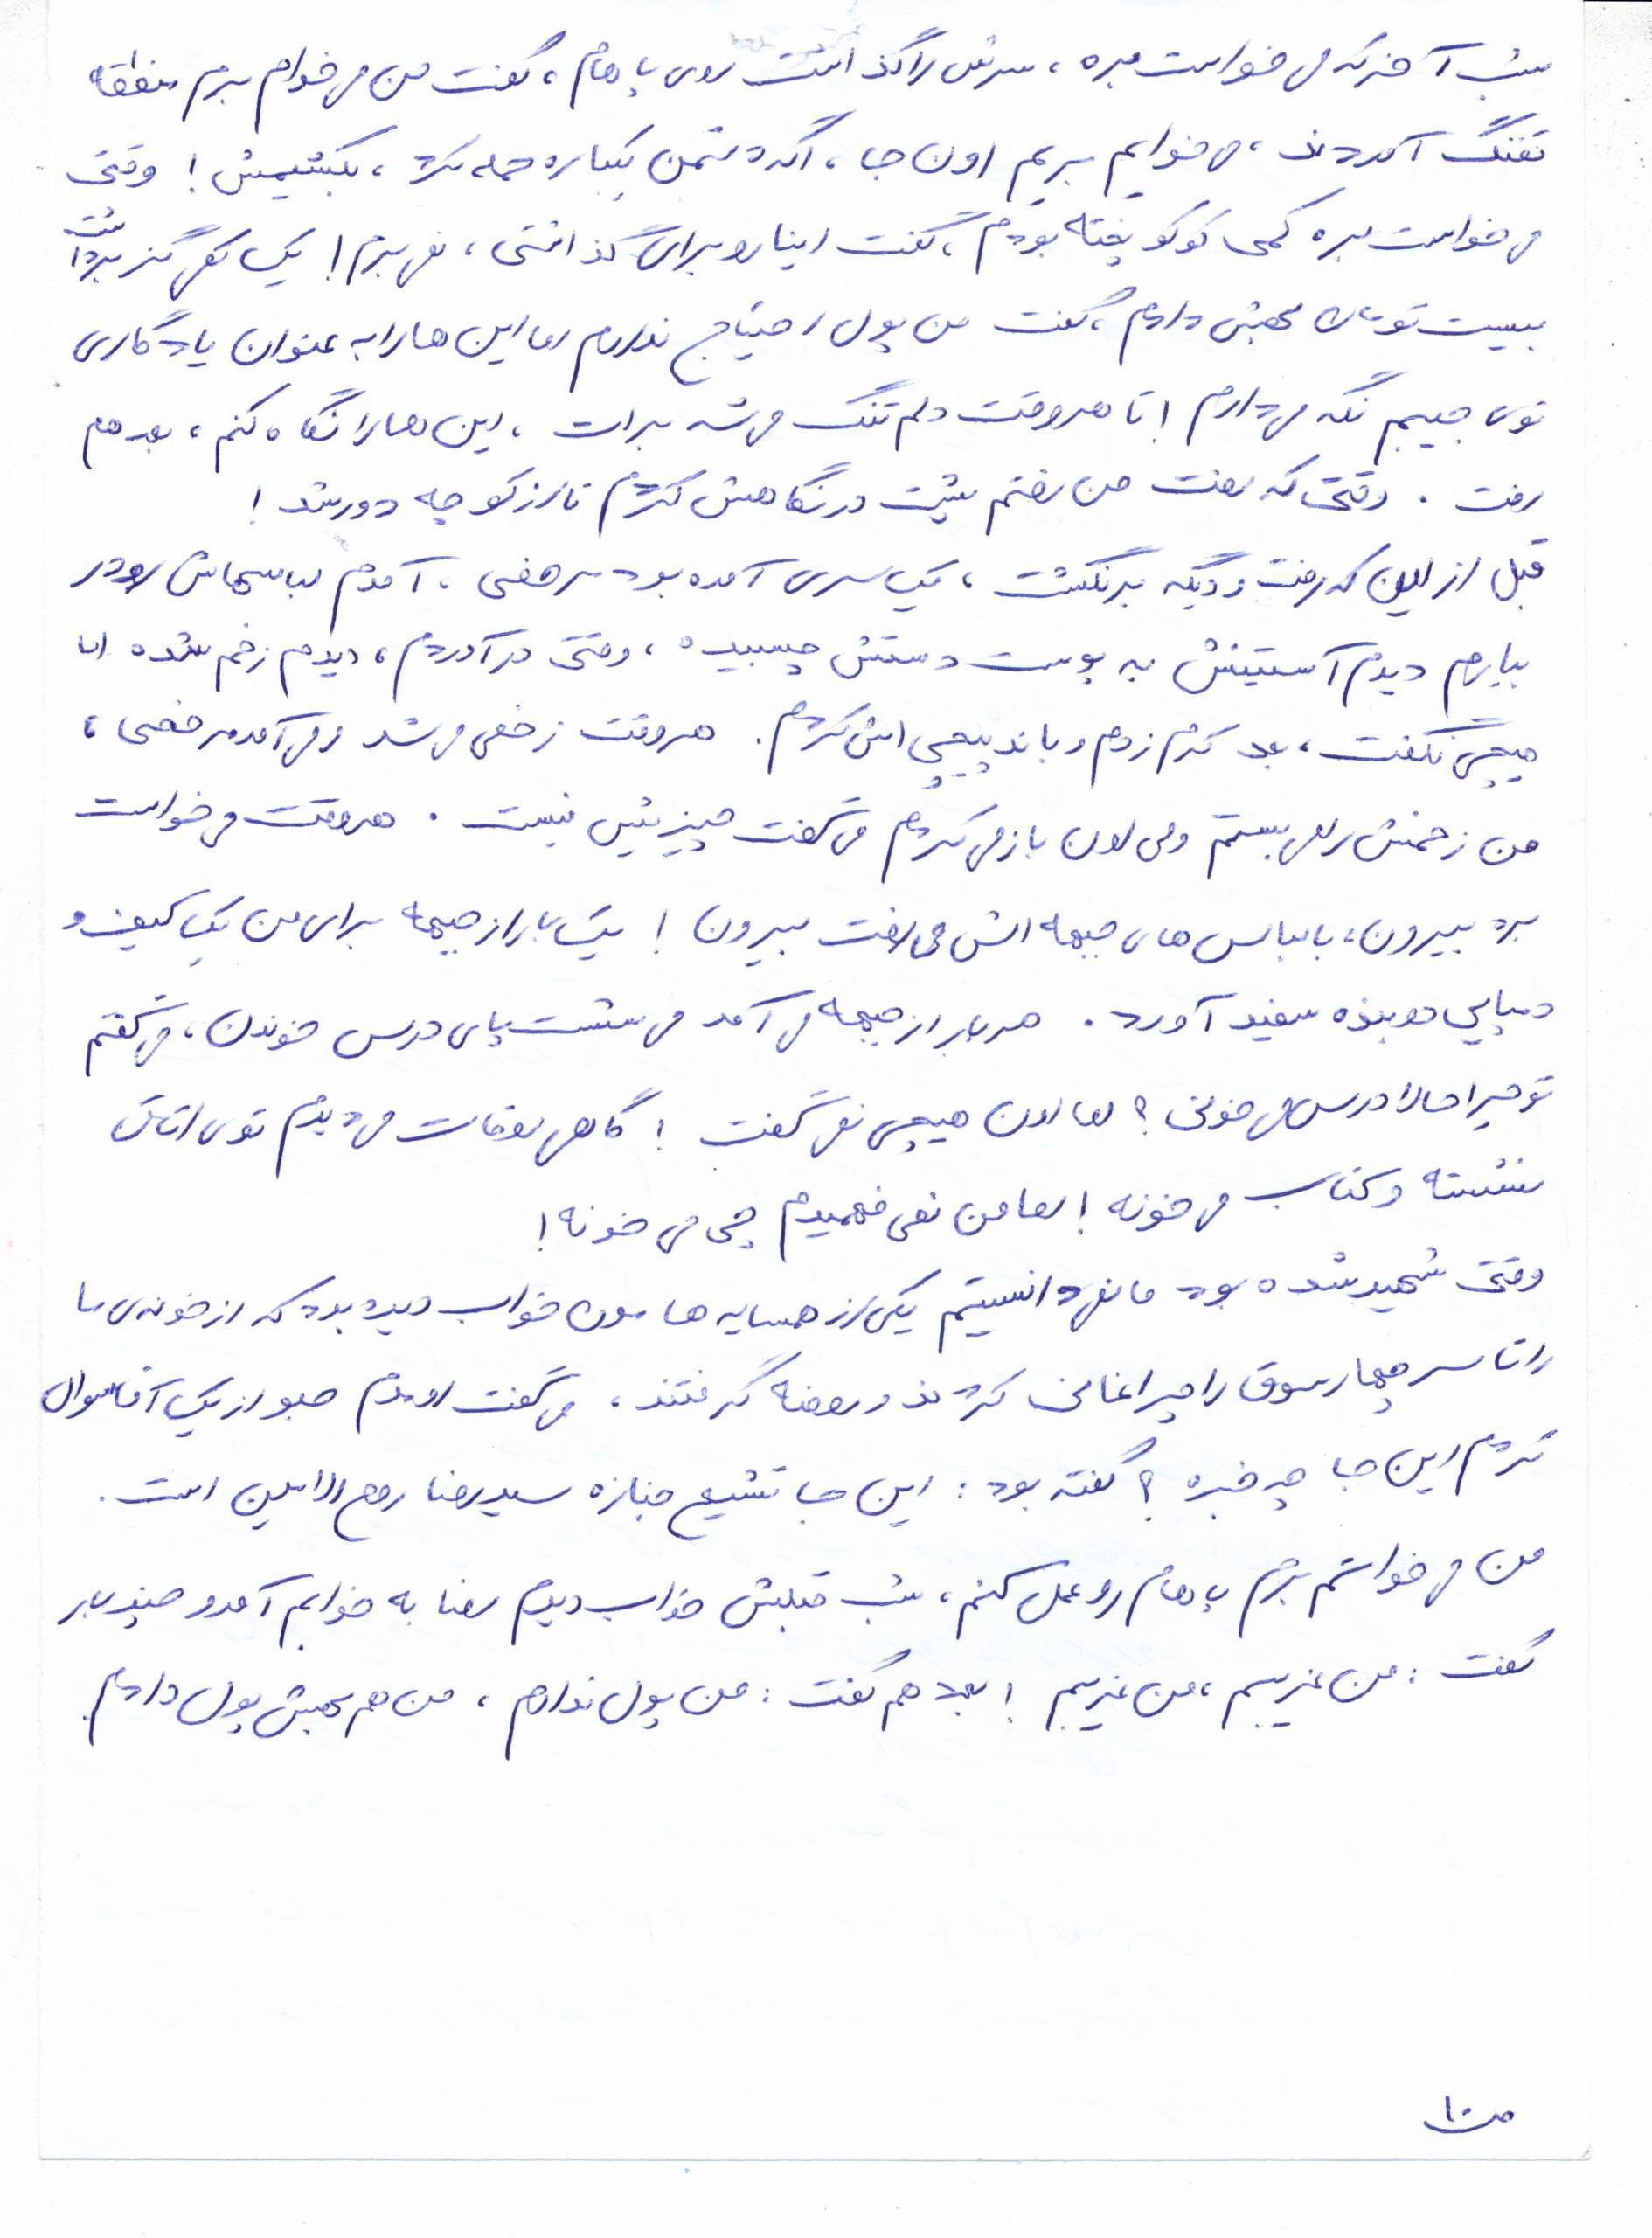 شب آخر که می خواست بره ، سرش را گذاشت روی پاهام ، گفت من می خوام برم منطقه
تفنگ آمدن ، می خوایم بریم اون جا ، اگه دشمن یکباره حمله کرد ، بکشیمش ! وقتی
می خواست بره کمی کوکو پخته بودم ، گفت اینا رو برای گذاشتی ، نمی برم ! یک گز برداشت
بیست تومان بهش دادم ، گفت من پول احتیاج ندارم اما این ها را به عنوان یادگاری
توی جیبم نگه می دارم ! تا هر وقت دلم تنگ می شه برات ، این ها را نگاه کنم ، بعد هم
رفت . وقتی که رفت من رفتم پشت در نگاهش کردم تا از کوچه دور شد !
قبل از این که رفت و دیگه برنگشت ، یک سری آمده بود مرخصی ، آمدم لباسهاش رو در
بیارم دیدم آستینش به پوست دستش چسبیده ، وقتی درآوردم ، دیدم زخم شده اما
هیچی نگفت ، بعد کرم زدم و باند پیچی اش کردم . هر وقت زخمی می شد و می آمد مرخصی ،
من زخمش را می بستم ولی اون باز می کرد و می گفت چیزیش نیست . هر وقت می خواست
بره بیرون ، با لباس های جبهه اش می رفت بیرون ! یک بار از جبهه برای من یک کیف و
دمپایی سفید آورد . هر بار از جبهه می آمد می نشست پای درس خوندن ، می گفتم
تو چرا حالا درس می خونی ؟ اما اون هیچی نمی گفت ! گاهی اوقات می دیدم توی اتاق
نشسته و کتاب می خونه ! اما من نمی فهمیدم چی می خونه !
وقتی شهید شده بود ما نمی دانستیم یکی از همسایه ها مون خواب دیده بود که از خونه ی ما
را تا سر چهارسوق را چراغانی کردند و روضه گرفتند ، می گفت اومدم جلو از یک آقا سوال
کردم این جا چه خبره ؟ گفته بود : این جا تشیع جنازه سید رضا روح الامین است .
من می خواستم برم پاهام رو عمل کنم ، شب قبلش خواب دیدم رضا به خوابم آمد و چند بار
گفت : من غریبم ، من غریبم ! بعد هم گفت : من پول ندارم ، من هم بهش پول دادم .
ص ۱۰